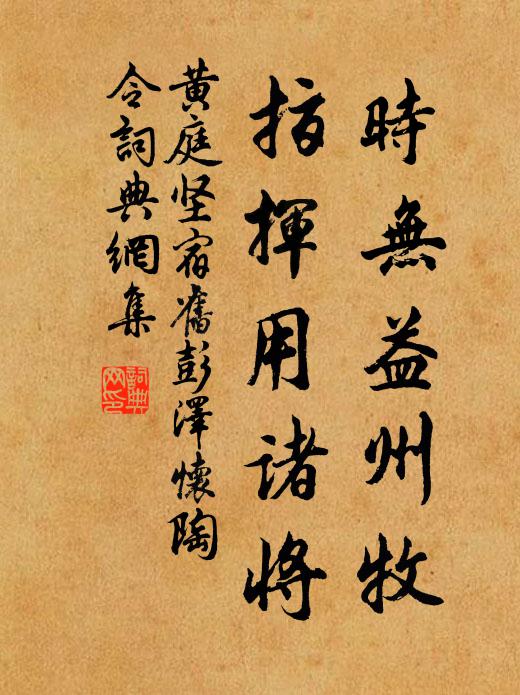 時無益州牧
指揮用諸將
黄庭坚宿舊彭澤懷陶
令詞典網集
詞典
网印